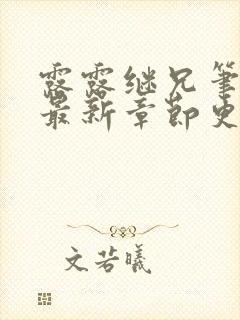 露露继兄笔
最新章节史
文若曦